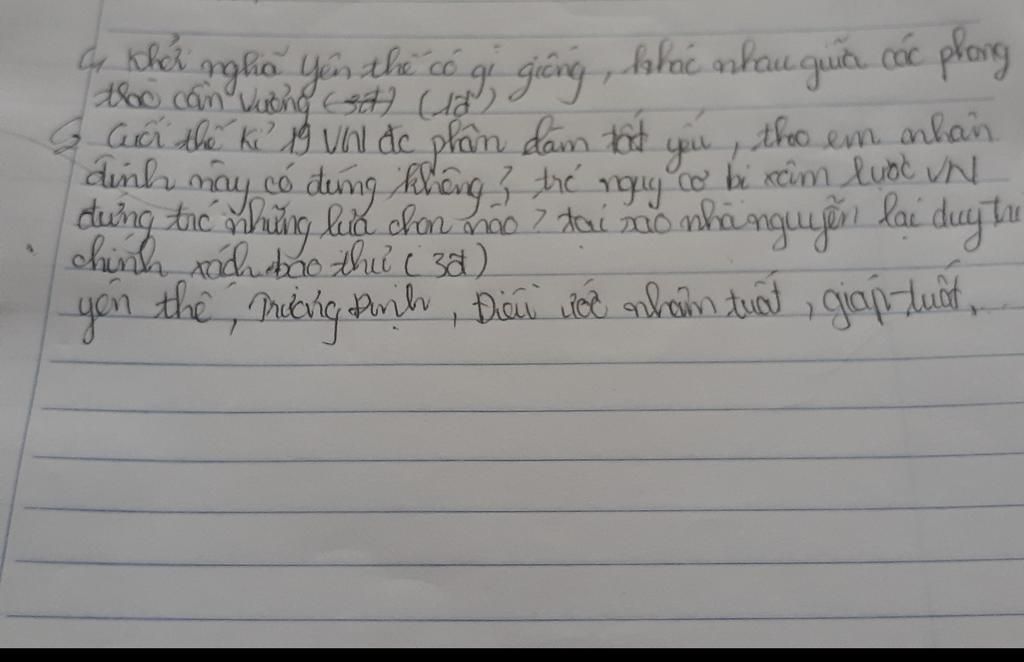 4, Khởi nghĩa Yên thế có gì giống, khác nhau giữa các phong
trào cần Vương (3đ) (1đ)
5 Cuối thế kỉ 19 VN đc phân đám tất yếu, theo em nhận
định này có đúng không? trc nguy cơ bị xâm lược VN
đứng trc những lựa chọn nào? tại sao nhà nguyễn lại duy trì
chính xách bảo thủ (3đ)
yên thế, Trương Định, Điều ước nhâm tuất, giáp-tuất,